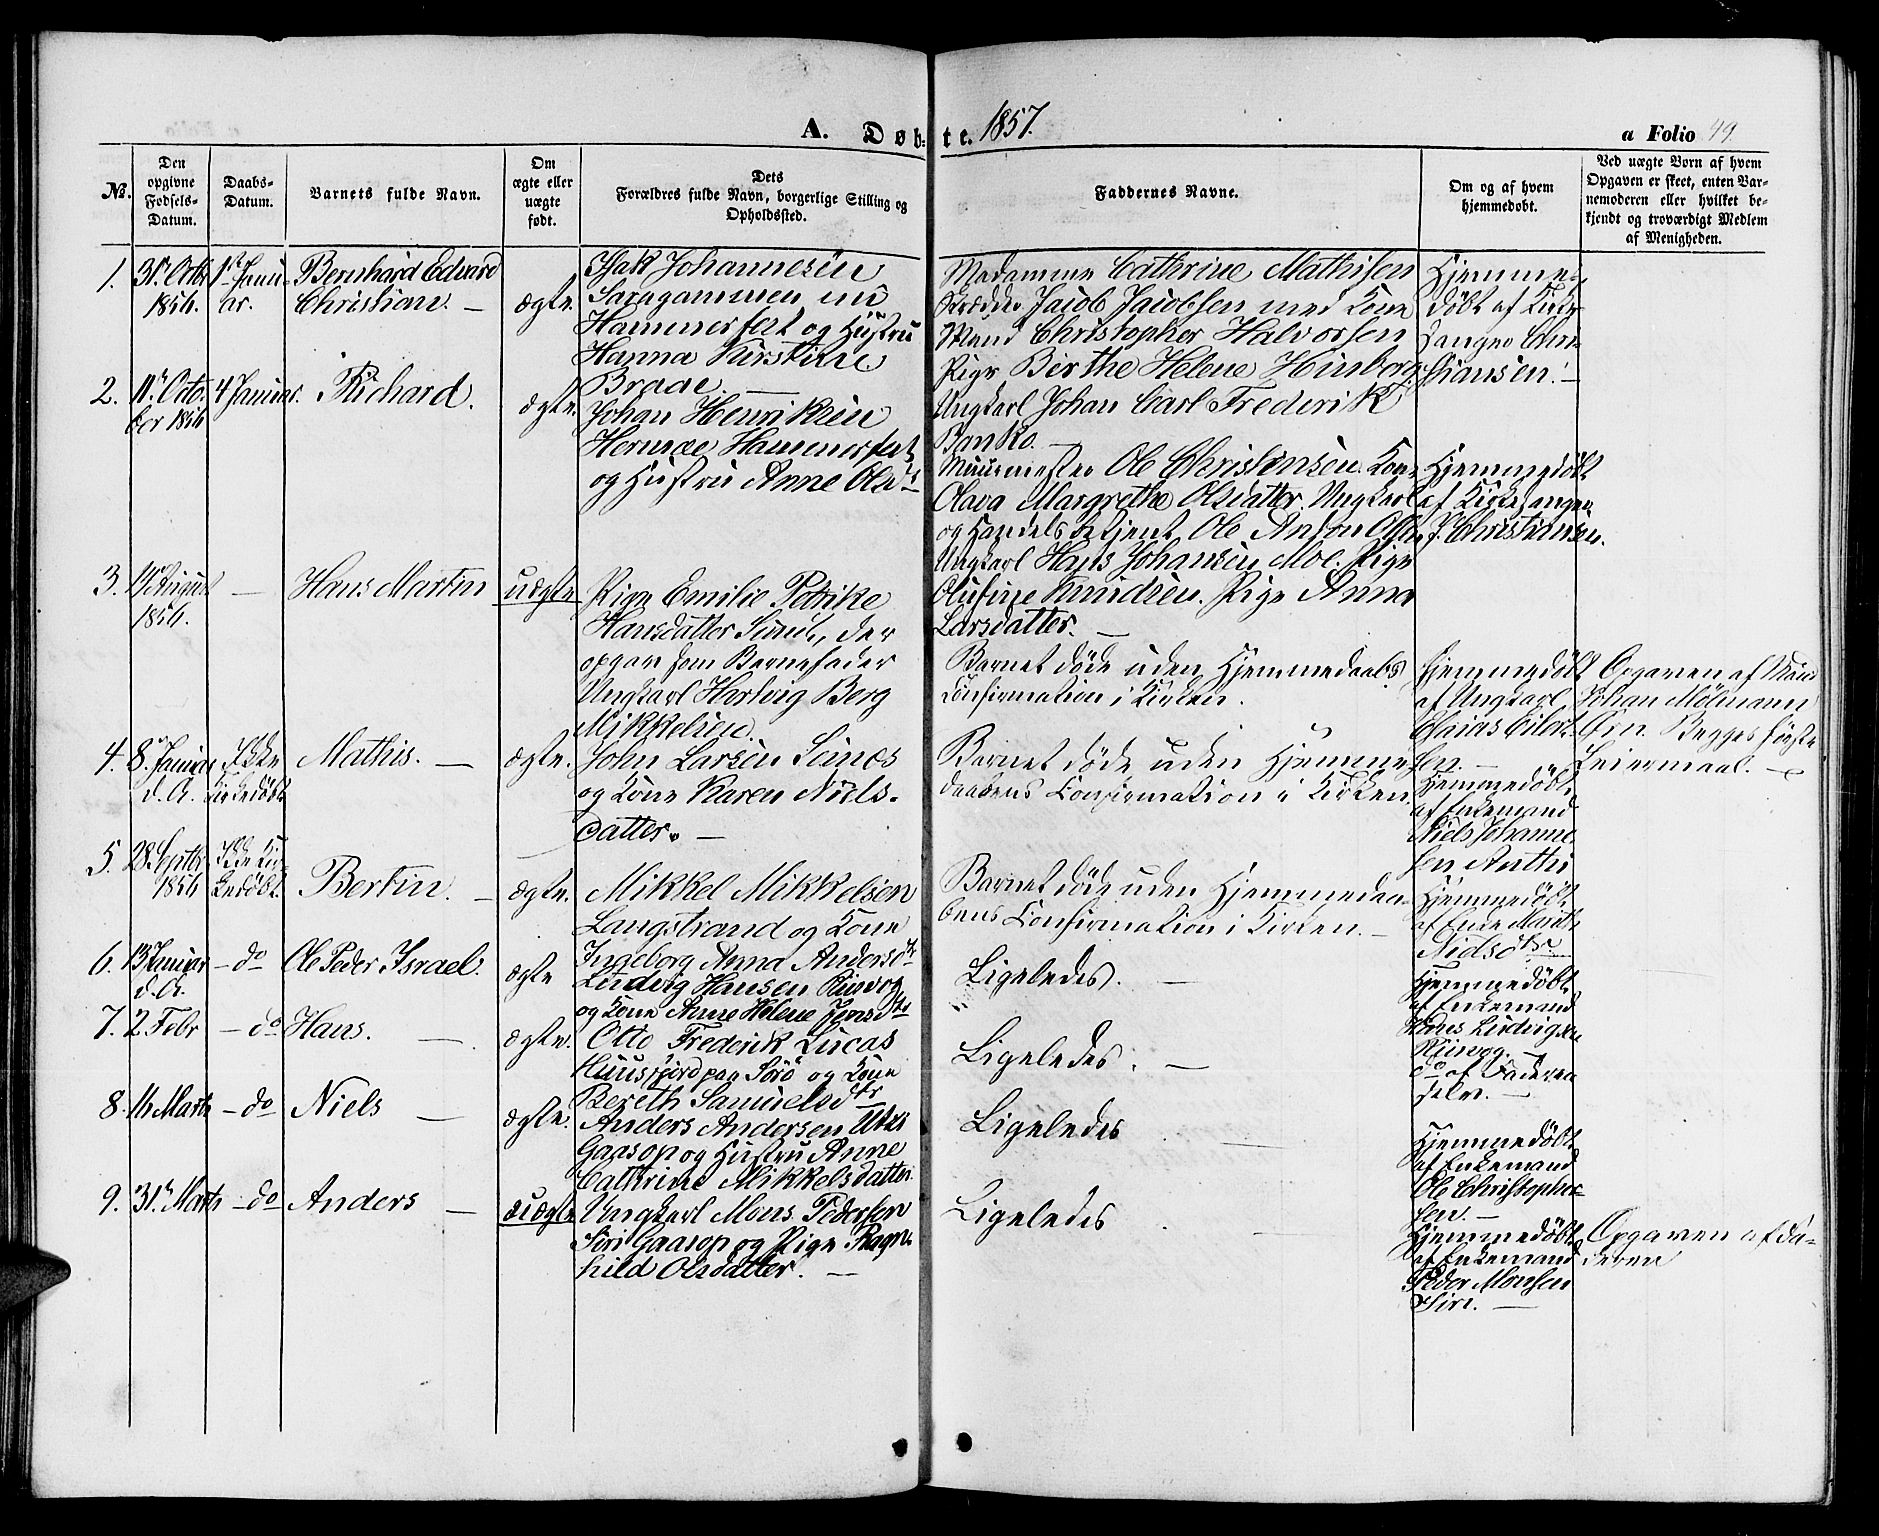 A. Døb-
te. 1857.
a Folio 49.
№.
Den opgivne Fødsels-Datum.
Daabs-Datum.
Barnets fulde Navn.
Om ægte eller uægte født.
Dets
Forældres fulde Navn, borgerlige Stilling og
Opholdssted.
Faddernes Navne.
Om og af hvem
hjemmedøbt.
Ved uægte Børn af hvem
Opgaven er skeet, enten Bar-
nemoderen eller hvilket be-
kjendt og troværdigt Medlem
af Menigheden.
1.
31te Octbr
1856.
1ste Janu-
ar.
Bernhard Edvard
Christian. —
ægte.
Isak Johannesen
Saragammen ved
Hammerfest og Hustru
Hanna Kirstine
Braae. —
Madamme Cathrine Mathisen
Jacob Jacobsen med Kone
Mand Christopher Halvorsen
Pige Birthe Helene
Ungkarl Johan Carl Frederik
Banko. —
Hjemme-
døbt af Kirke-
sanger Chri-
stiansen. —
2.
11te Octo-
ber 1856
4 Januar.
Richard.
ægte.
Johan Henriksen
Hammerfest
og Hustru Anne Olsdtr
Muurmester Ole Christensen. Kone
Olava Margrethe Olsdatter. Ungkarl
og Handelsbetjent Ole Anton
Ungkarl Hans Johansen Moe. Pige
Olufine Knudsen. Pige Anna
Larsdatter. —
Hjemmedøbt
af Kirkesanger
P. Christiansen.
3.
August
1856.
—
Hans Martin
uægte
Pige Emilie Petrike
Hansdatter, der
opgav som Barnefader
Ungkarl Hartvig Berg
Mikkelsen.
Barnet døde uden Hjemmedaabs
Confirmation i Kirken.
Hjemmedøbt
af Ungkarl
Eilert-
sen. —
Opgaven af Mand
Johan Mølmann
Begges første
Leiermaal. —
4.
8. Januar
d. A.
Ikke
Kirkedøbt
Mathis. —
ægte.
John Larsen
og Kone Karen Niels-
datter. —
Barnet døde uden Hjemme-
daabens Confirmation i Kirken.
Hjemmedøbt
af Enkemand
Niels Johanne-
sen
5.
28 Septbr
1856
Ikke Kir-
kedøbt.
Bertin. —
ægte.
Mikkel Mikkelsen
Langstrand og Kone
Ingeborg Anna Andersdtr
Barnet døde uden Hjemmedaa-
bens Confirmation i Kirken. —
Hjemmedøbt
af Enke
Nielsdtr
6.
13 Januar
d. A.
— do
Ole Peder Israel.
ægte
Ludvig Hansen
og Kone Anne Helene Jensdtr
Ligeledes. —
Hjemmedøbt
af Enkemand
Hans Ludvigsen
7.
2 Febr
— do
Hans. —
ægte.
Otto Frederik Lucas
paa Sørø og Kone
Bereth Samuelsdtr
Ligeledes. —
do af Faderen
selv. —
8.
Marts
— do
Niels —
ægte.
Anders Andersen
Gaasop og Hustru Anne
Cathrine Mikkelsdatter.
Ligeledes
Hjemmedøbt
af Enkemand
Ole Christopher-
sen. —
9.
31te Marts
— do
Anders —
uægte
Ungkarl Mons Pedersen
Siri Gaasop og Pige Ragn-
hild Olsdatter. —
Ligeledes
Hjemmedøbt
af Enkemand
Peder Monsen
Siri. —
Opgaven af Fa-
deren